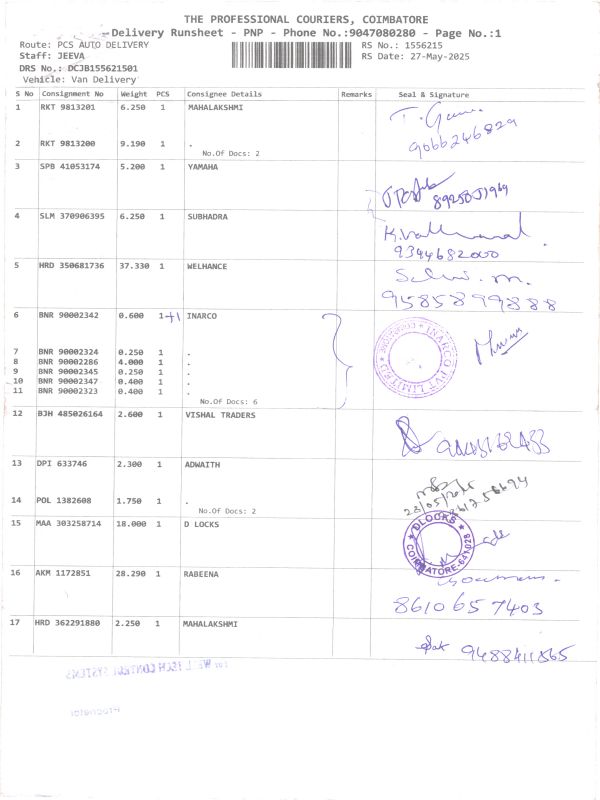 THE PROFESSIONAL COURIERS, COIMBATORE
Delivery Runsheet - PNP - Phone No.:9047080280 - Page No.:1
Route: PCS AUTO DELIVERY
Staff: JEEVA
DRS No.: DCJB155621501
Vehicle: Van Delivery
RS No.: 1556215
RS Date: 27-May-2025
S No Consignment No Weight PCS Consignee Details Remarks Seal & Signature
1 RKT 9813201 6.250 1 MAHALAKSHMI
9066246829
2 RKT 9813200 9.190 1 .
No.Of Docs: 2
3 SPB 41053174 5.200 1 YAMAHA
4 SLM 370906395 6.250 1 SUBHADRA
9394682000
5 HRD 350681736 37.330 1 WELHANCE
9585899888
6 BNR 90002342 0.600 1+1 INARCO
INARCO PVT LIMITED
7 BNR 90002324 0.250 1 .
8 BNR 90002286 4.000 1 .
9 BNR 90002345 0.250 1 .
10 BNR 90002347 0.400 1 .
11 BNR 90002323 0.400 1 .
No.Of Docs: 6
12 BJH 485026164 2.600 1 VISHAL TRADERS
13 DPI 633746 2.300 1 ADWAITH
14 POL 1382608 1.750 1 .
No.Of Docs: 2
15 MAA 303258714 18.000 1 D LOCKS
DLOCKS
COIMBATORE-641 028
16 AKM 1172851 28.290 1 RABEENA
8610657403
17 HRD 362291880 2.250 1 MAHALAKSHMI